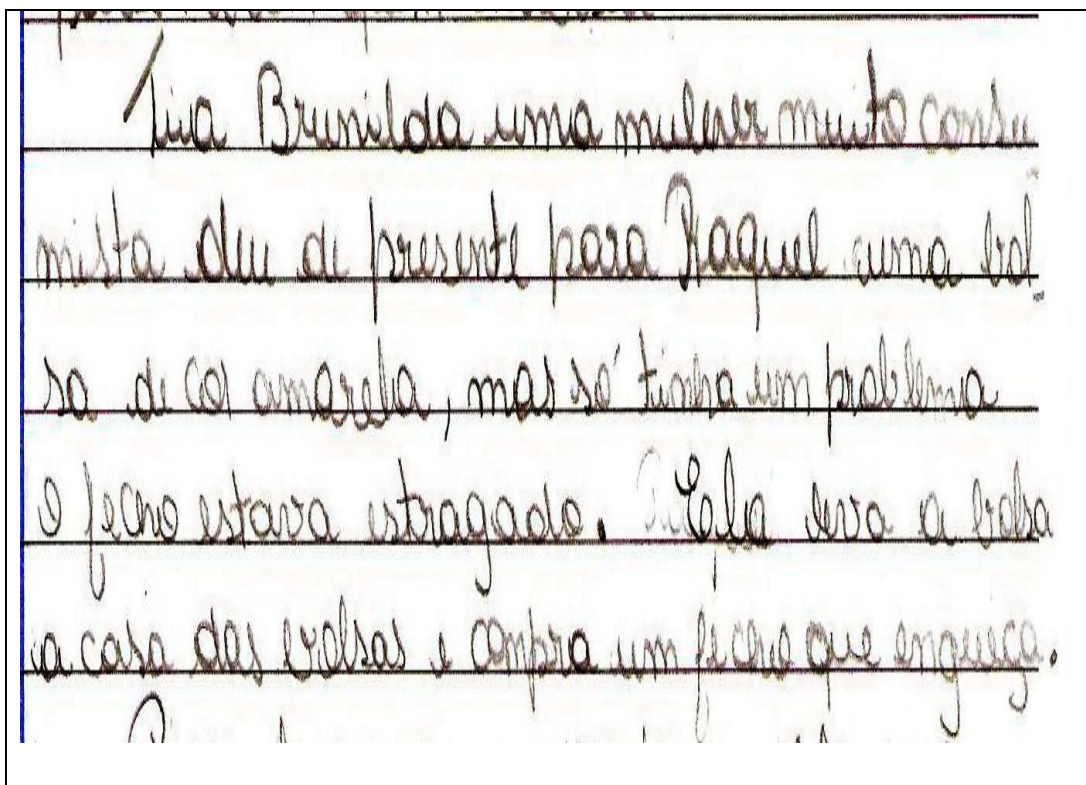 Tiua Brunilda uma mulher muito consu
mista deu de presente para Raquel uma bol
sa de cor amarela, mas só tinha um problema
o fecho estava estragado. Ela leva a bolsa
a casa das bolsas e compra um fecho que enguiça.